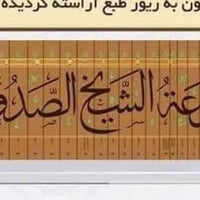 ون به زیور طبع آراسته گردیده
عة الشيخ الصدو